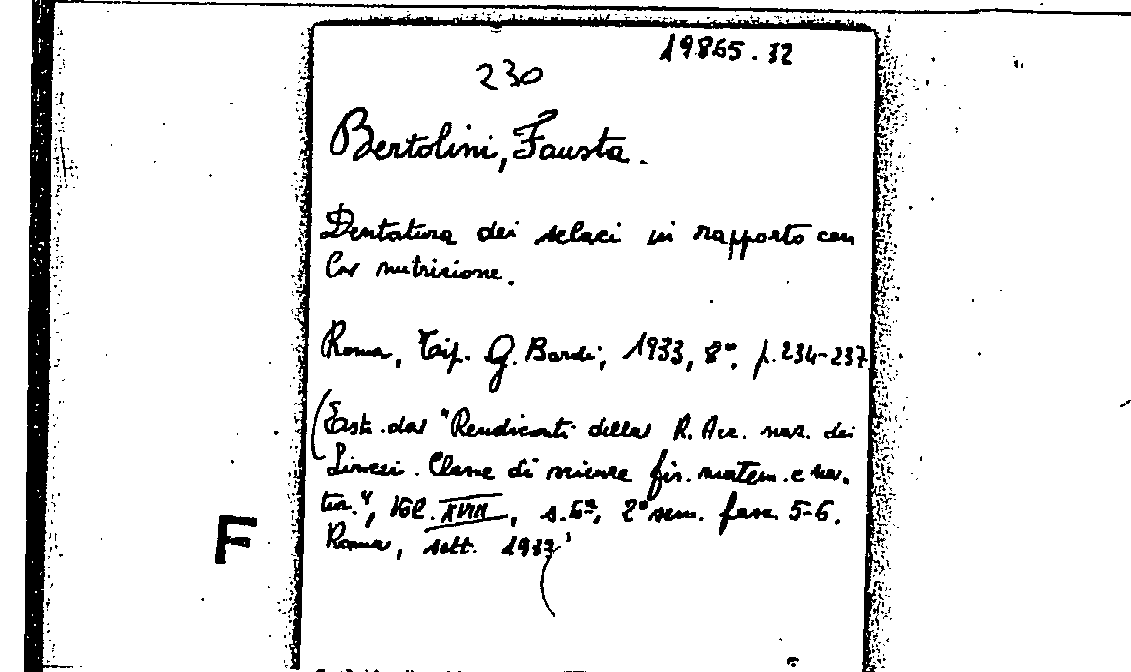 19865.32
230
Bertolini, Fausta.
Dentatura dei selaci in rapporto con
la nutrizione.
Roma, Tip. G. Bardi, 1933, 8°. p. 234-237
(Estr. dai "Rendiconti della R. Acc. naz. dei
Lincei. Classe di scienze fis. matem. e na-
tur.", Vol. XVIII, s. 6ª, 2° sem. fasc. 5-6.
Roma, sett. 1933)
F